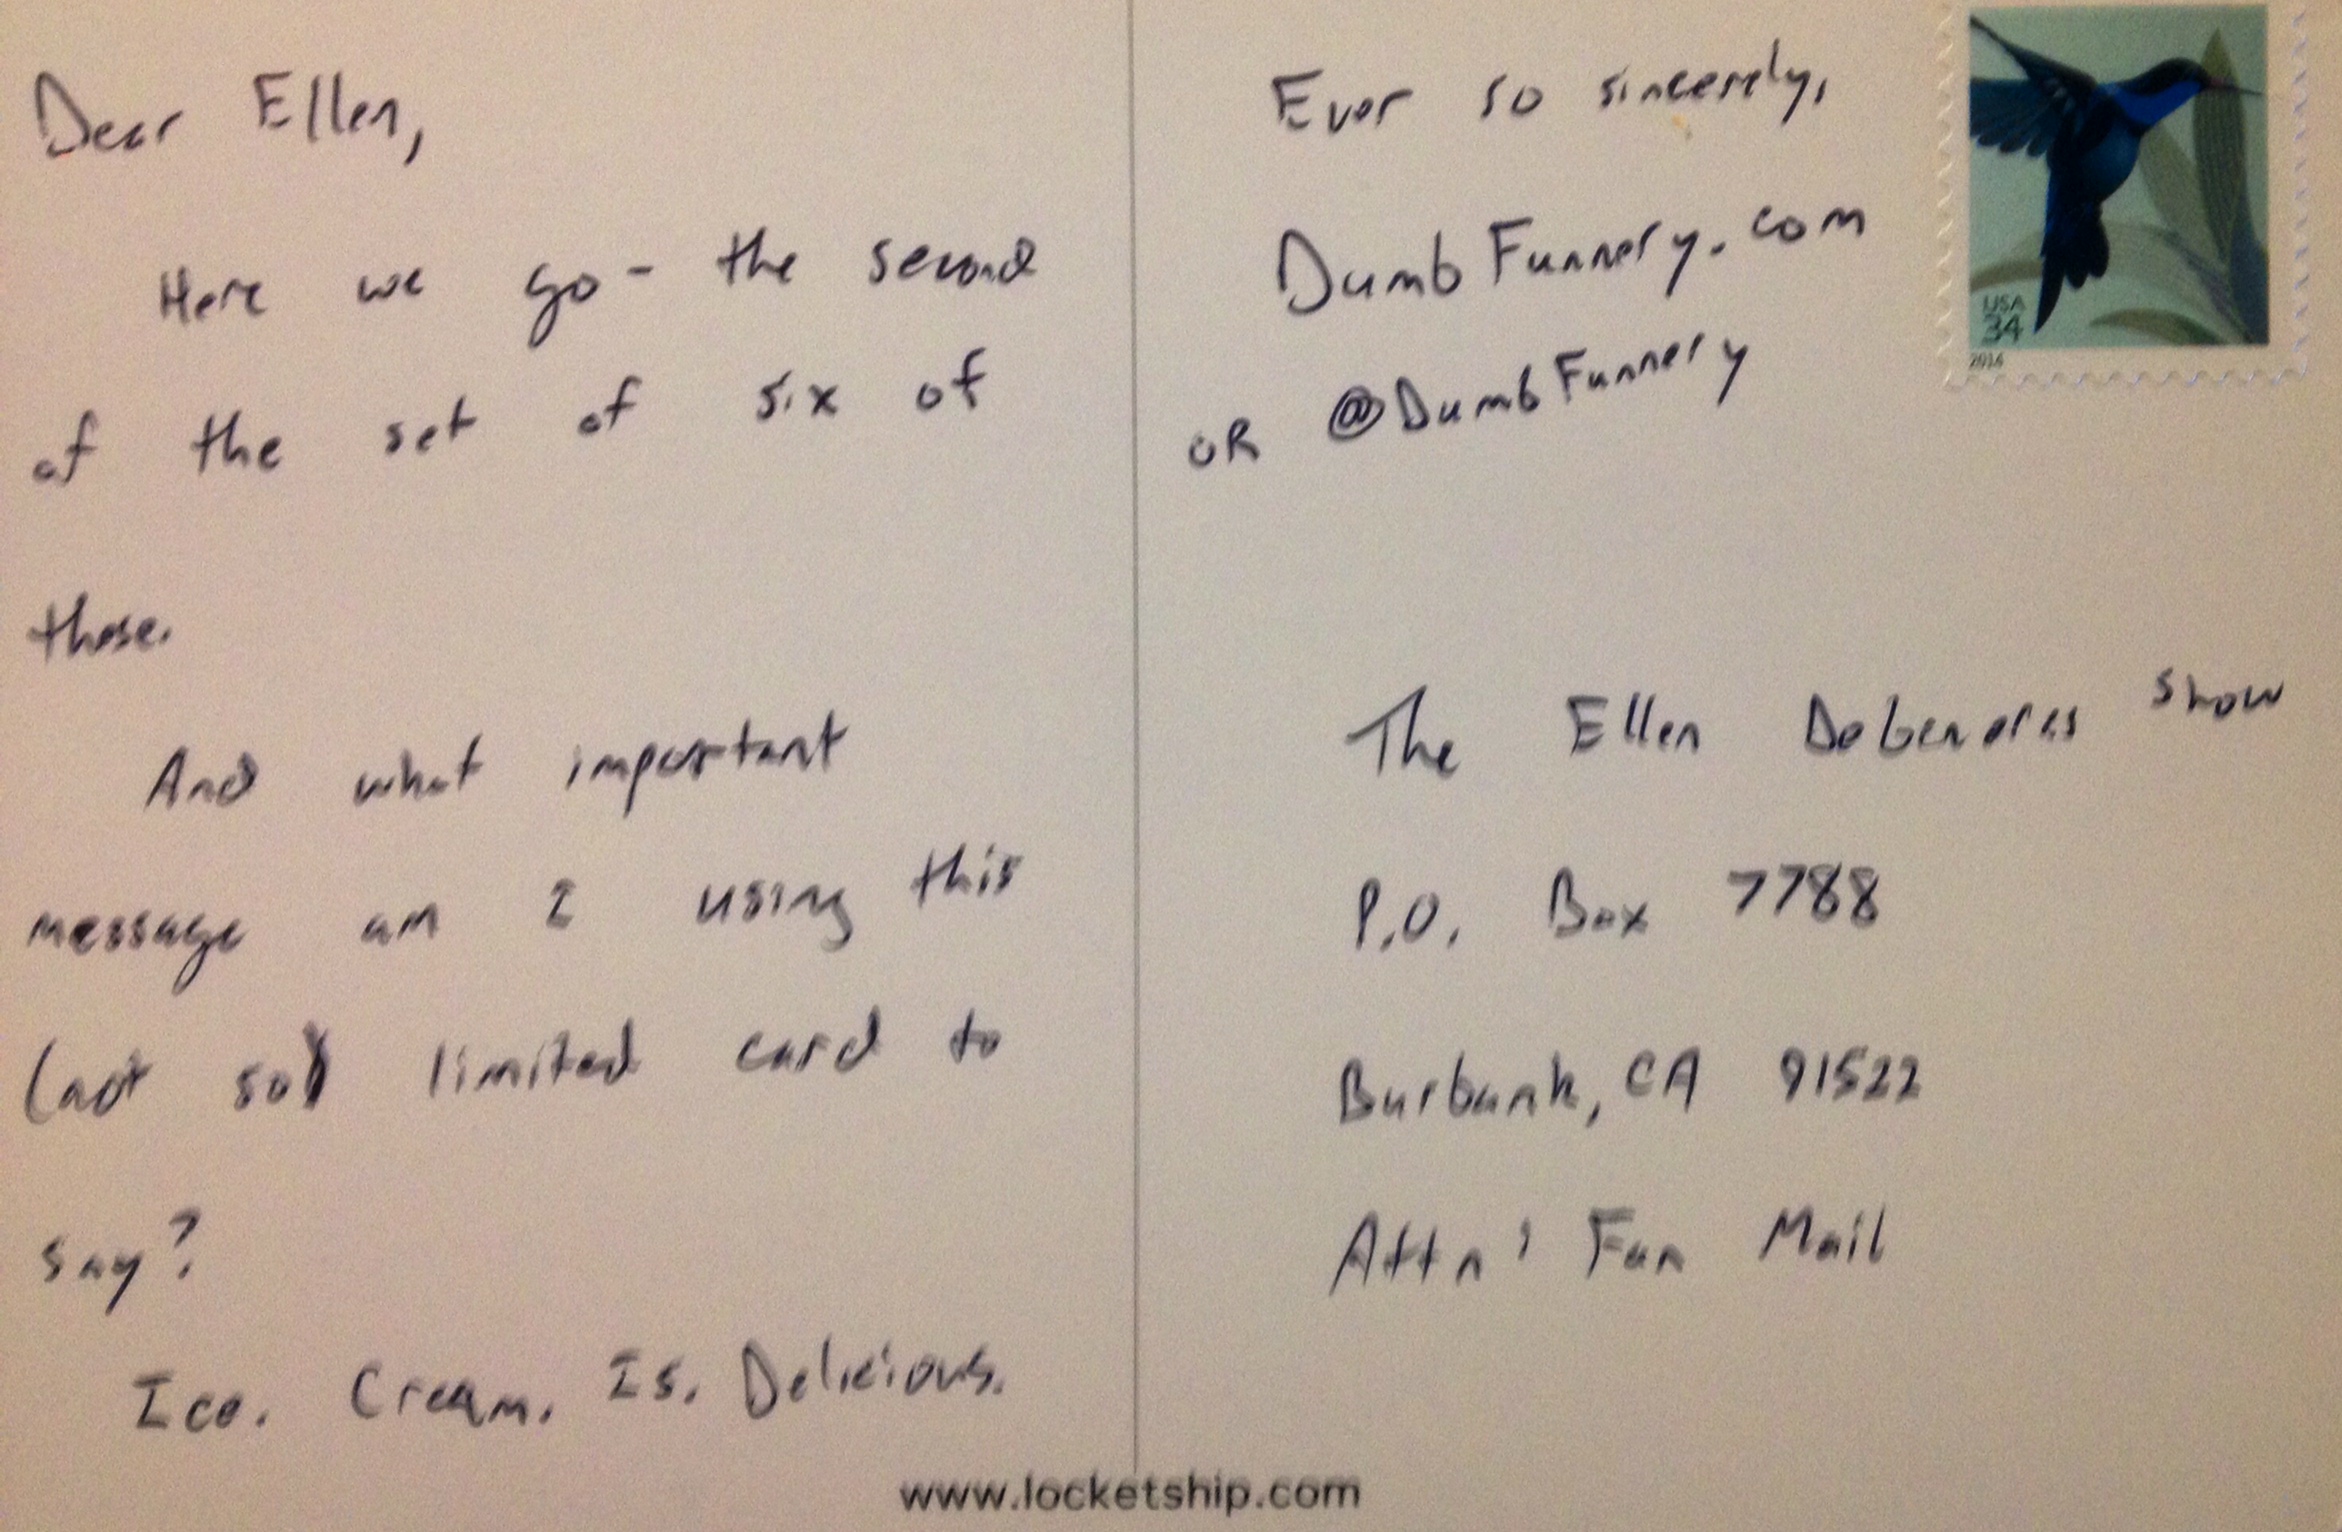 Dear Ellen,
Here we go - the second
of the set of six of
these.
And what important
message am I using this
(not so) limited card to
say?
Ice. Cream. Is. Delicious.
Ever so sincerely,
DumbFunnery.com
OR @DumbFunnery
USA
34
2014
The Ellen Degeneres Show
P.O. Box 7788
Burbank, CA 91522
Attn: Fan Mail
www.locketship.com